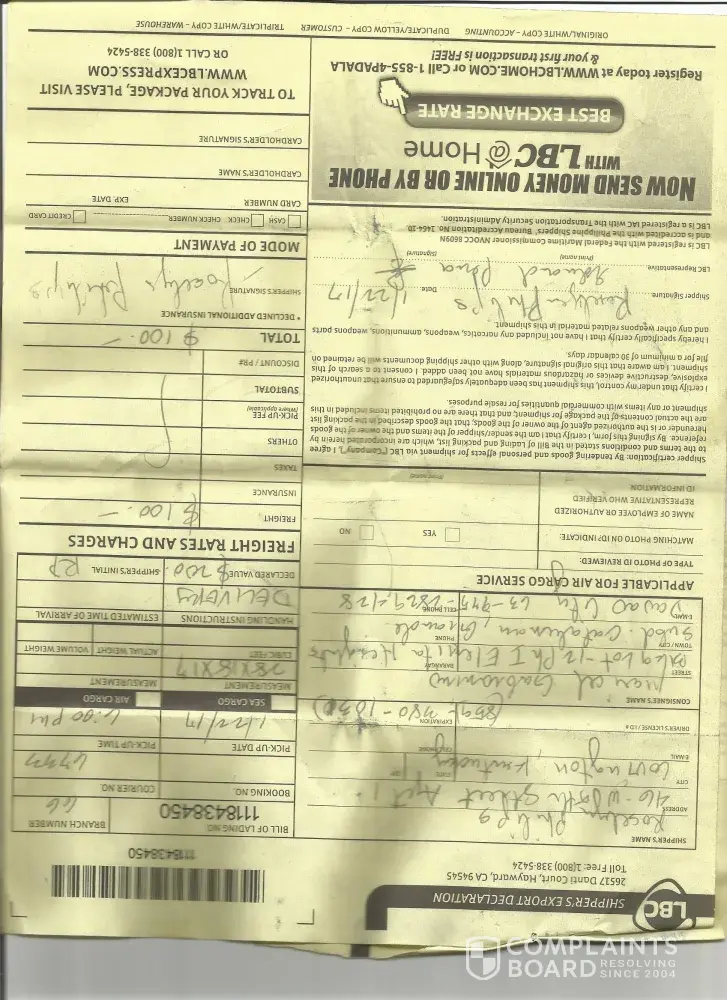 LBC
SHIPPER'S EXPORT DECLARATION
26517 Danti Court, Hayward, CA 94545
Toll Free: 1(800) 338-5424
1118438450
BILL OF LADING NO.
1118438450
BRANCH NUMBER
66
BOOKING NO.
COURIER NO.
PICK-UP DATE
1/22/17
PICK-UP TIME
SEA CARGO
AIR CARGO
MEASUREMENT
28X18X17
MEASUREMENT
CUBIC FEET
ACTUAL WEIGHT
VOLUME WEIGHT
HANDLING INSTRUCTIONS
DELIVERY
ESTIMATED TIME OF ARRIVAL
DECLARED VALUE
$ 200.
SHIPPER'S INITIAL
RP
SHIPPER'S NAME
Roselyn Philips
ADDRESS
Street Apt 1
CITY
Covington, Kentucky
STATE
ZIP
E-MAIL
CELL PHONE
DRIVER'S LICENSE / ID #
EXPIRATION
CONSIGNEE'S NAME
STREET
Blk 9 Lot-12 Ph I Elenita Heights
BARANGAY
TOWN / CITY
Subd. Catalunan Grande
PHONE
E-MAIL
Davao City
CELL PHONE
APPLICABLE FOR AIR CARGO SERVICE
TYPE OF PHOTO ID REVIEWED:
MATCHING PHOTO ON ID? INDICATE:
YES
NO
NAME OF EMPLOYEE OR AUTHORIZED
REPRESENTATIVE WHO VERIFIED
ID INFORMATION
(Print name)
Shipper certification: By tendering goods and personal effects for shipment via LBC ("Company"), I agree
to the terms and conditions stated in the Bill of Lading and packing list, which are incorporated herein by
reference. By signing this form, I certify that I am the sender/shipper of the items and the owner of the goods
hereunder or is the authorized agent of the owner of the goods, that the goods described in the packing list
are the actual contents of the package for shipment, and that there are no prohibited items included in this
shipment or any items with commercial quantities for resale purposes.
I certify that under my control, this shipment has been adequately safeguarded to ensure that unauthorized
explosive, destructive devices or hazardous materials have not been added. I consent to a search of this
shipment. I am aware that this original signature, along with other shipping documents will be retained on
file for a minimum of 30 calendar days.
I hereby specifically certify that I have not included any narcotics, weapons, ammunitions, weapons parts
and any other weapons related material in this shipment.
Shipper Signature
Roselyn Philips
Date
1/22/17
LBC Representative
Edward
(Print name)
(Signature)
LBC is registered with the Federal Maritime Commissioner NVOCC 8609N
and is accredited with the Philippine Shippers' Bureau Accreditation No.
LBC is a registered IAC with the Transportation Security Administration.
FREIGHT RATES AND CHARGES
FREIGHT
$ 100.-
INSURANCE
TAXES
OTHERS
PICK-UP FEE
(Where applicable)
SUBTOTAL
DISCOUNT / PR#
TOTAL
$ 100.-
* DECLINED ADDITIONAL INSURANCE
SHIPPER'S SIGNATURE
Roselyn Philips
MODE OF PAYMENT
CASH
CHECK
CHECK NUMBER
CREDIT CARD
CARD NUMBER
EXP. DATE
CARDHOLDER'S NAME
CARDHOLDER'S SIGNATURE
NOW SEND MONEY ONLINE OR BY PHONE
WITH LBC @ Home
BEST EXCHANGE RATE
Register today at WWW.LBCHOME.COM or Call 1-855-4PADALA
& your first transaction is FREE!
TO TRACK YOUR PACKAGE, PLEASE VISIT
WWW.LBCEXPRESS.COM
OR CALL 1(800) 338-5424
ORIGINAL/WHITE COPY - ACCOUNTING DUPLICATE/YELLOW COPY - CUSTOMER TRIPLICATE/WHITE COPY - WAREHOUSE
COMPLAINTS
BOARD
RESOLVING
SINCE 2004